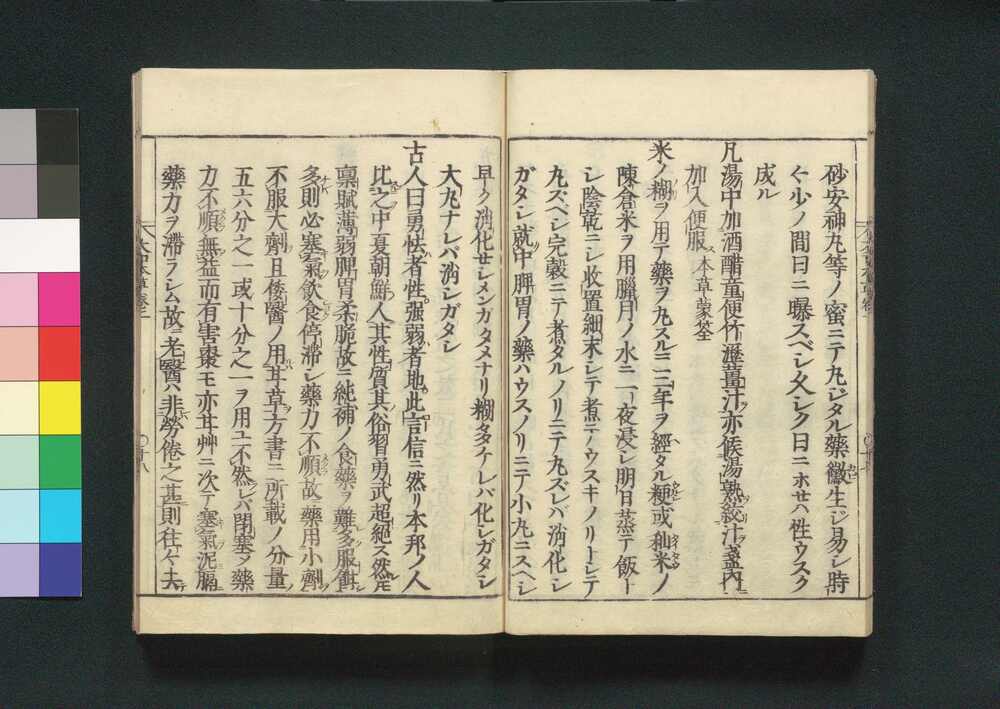 砂安神丸等ノ蜜ニテ丸ジタル藥黴生ジ易シ時
々少ノ間日ニ曝スベシ久シク日ニホセハ性ウスク
成ル
凡湯中加酒醋童便竹瀝薑汁亦候湯熟絞汁盞內
加入便服 本草蒙筌
米ノ糊ヲ用テ藥ヲ丸スルニ三年ヲ經タル粳或秈米ノ
陳倉米ヲ用臘月ノ水ニ一夜浸シ明日蒸テ飯ト
シ陰乾ニシ收置細末シテ煮テウスキノリトシテ
丸スベシ完穀ニテ煮タルノリニテ丸ズレバ消化シ
ガタシ就中脾胃ノ藥ハウスノリニテ小丸ニスヘシ
早ク消化セシメンガタメナリ糊多ケレバ化シガタシ
大丸ナレバ消シガタシ
古人曰勇怯者性強弱者地此言信ニ然リ本邦ノ人
比之中夏朝鮮人其性質其俗習勇武超絶ス然𪜈
稟賦薄弱脾胃柔脆故ニ純補ノ食藥ヲ難多服餌
多則必塞氣飮食停滯シ藥力不順故ニ藥用小劑
不服大劑且倭醫ノ用甘草方書ニ所載ノ分量
五六分之一或十分之一ヲ用ユ不然レバ閉塞ヲ藥
力不順無益而有害棗モ亦甘艸ニ次テ塞氣泥膈
藥力ヲ滯ラシム故ニ老醫ハ非勞倦之甚則往々去